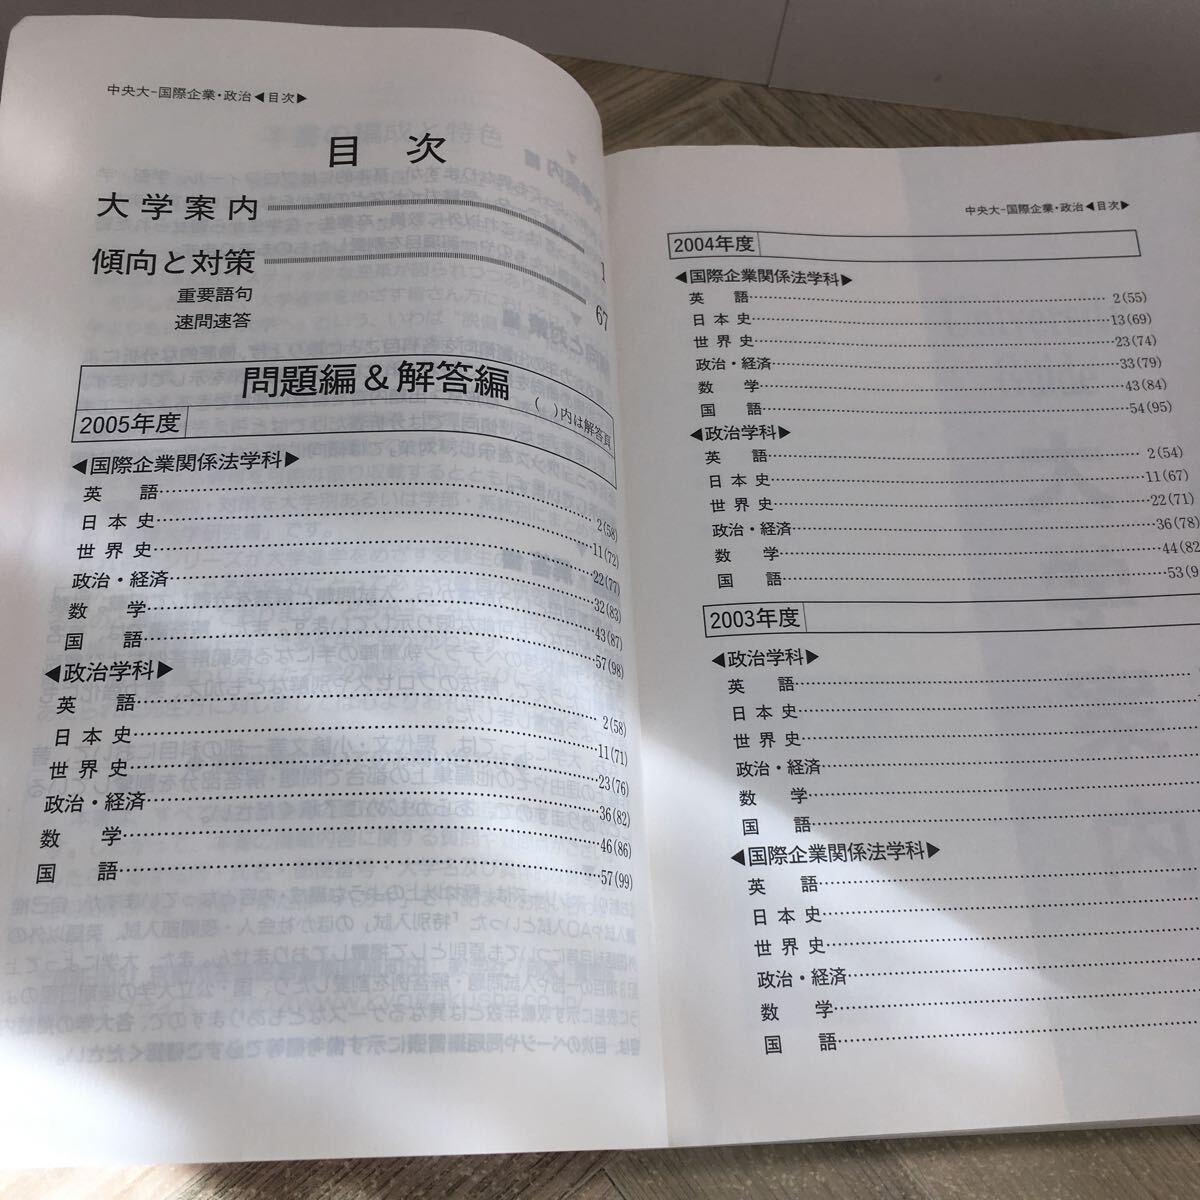 中央大-国際企業・政治◀目次▶
目 次
大学案内 1
傾向と対策 67
重要語句
速問速答
問題編&解答編
( )内は解答頁
2005年度
◀国際企業関係法学科▶
英 語 2(58)
日本史 11(72)
世界史 22(77)
政治・経済 32(83)
数 学 43(87)
国 語 57(98)
◀政治学科▶
英 語 2(58)
日本史 11(71)
世界史 23(76)
政治・経済 36(82)
数 学 46(86)
国 語 57(99)
中央大-国際企業・政治◀目次▶
2004年度
◀国際企業関係法学科▶
英 語 2(55)
日本史 13(69)
世界史 23(74)
政治・経済 33(79)
数 学 43(84)
国 語 54(95)
◀政治学科▶
英 語 2(54)
日本史 11(67)
世界史 22(71)
政治・経済 36(78)
数 学 44(82
国 語 53(9
2003年度
◀政治学科▶
英 語
日本史
世界史
政治・経済
数 学
国 語
◀国際企業関係法学科▶
英 語
日本史
世界史
政治・経済
数 学
国 語